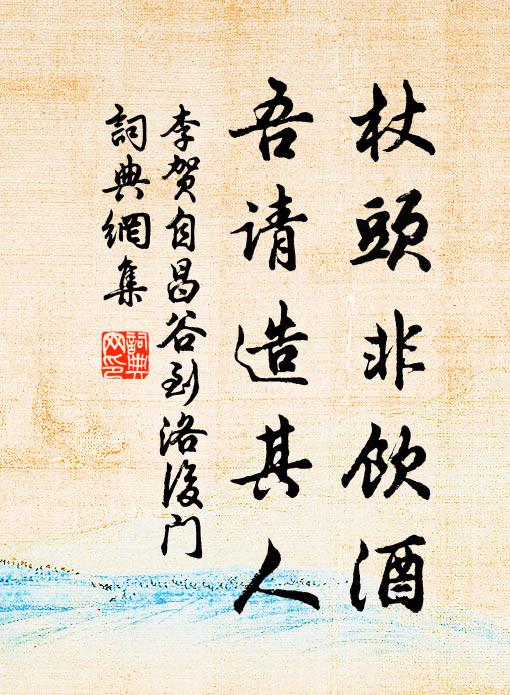 杖頭非飲酒
吾请造其人
李贺自昌谷到洛後门
詞典網集
詞典